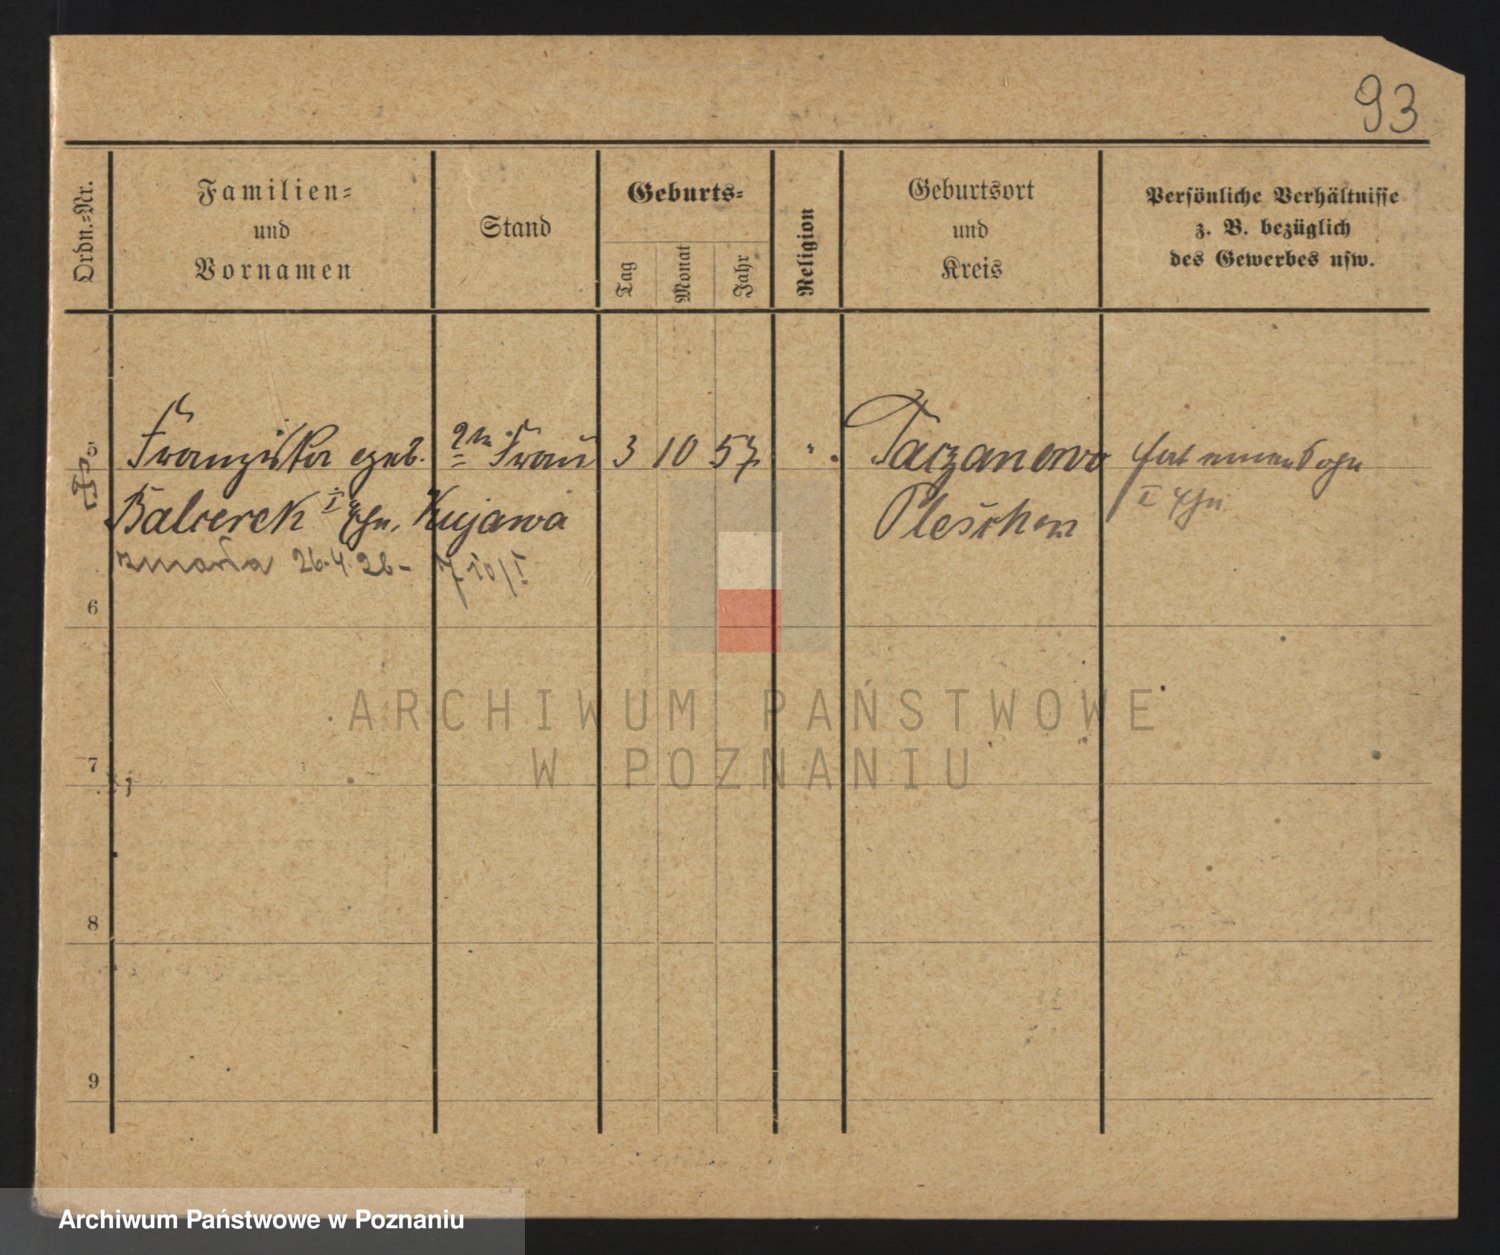 93
Ordn.-Nr.
Familien-
und
Vornamen
Stand
Geburts-
Tag
Monat
Jahr
Religion
Geburtsort
und
Kreis
Persönliche Verhältnisse
z. B. bezüglich
des Gewerbes usw.
5 Franziska geb. 2te Frau 3 10 57 " Taczanowo hat einen Sohn
Balcerek I Ehe, Kujawa Pleschen I Ehe
zmarła 26.4.26 -
6
7
8
9
ARCHIWUM PAŃSTWOWE
W POZNANIU
Archiwum Państwowe w Poznaniu